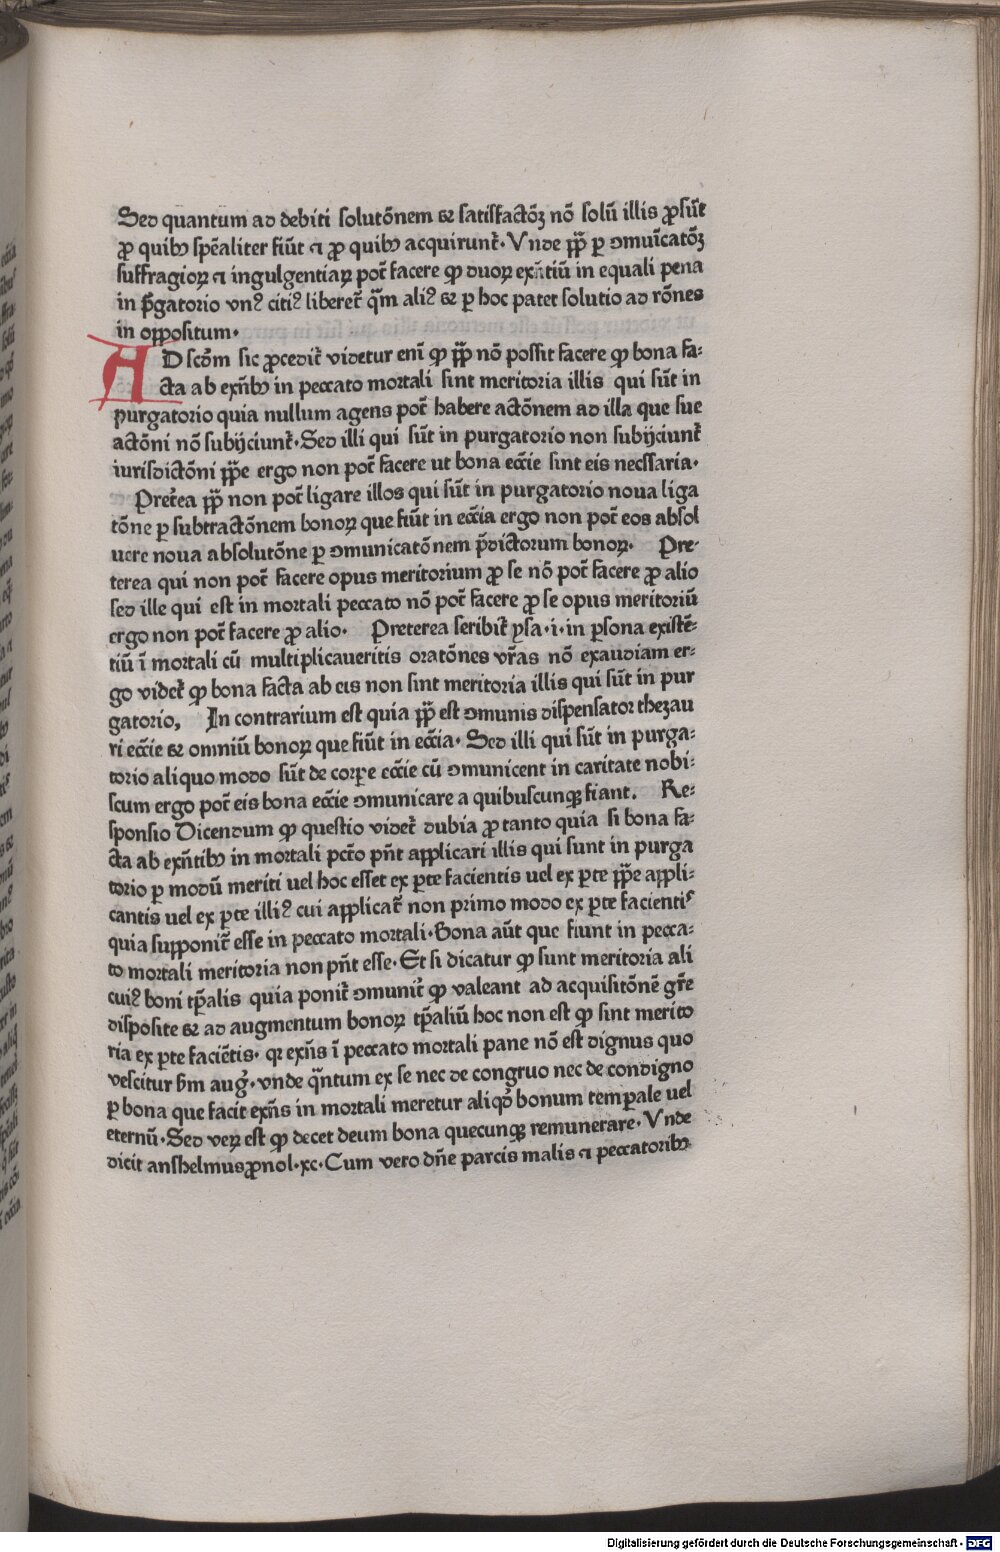 Sed quantum ad debiti solutōnem ⁊ satisfactōꝫ nō solū illis ꝓsūt
ꝓ quibꝫ spēaliter fiūt ⁊ ꝓ quibꝫ acquirunt᷑. Vnde pp̄ ꝑ ꝯmuīcatōꝫ
suffragioꝝ ⁊ ingulgentiaꝝ pot̄ facere ꝙ duoꝝ exn̄tiū in equali pena
in p̄gatorio vnꝰ citiꝰ liberet᷑ q̄m aliꝰ ⁊ ꝑ hoc patet solutio ad rōnes
in oppositum.
AD scdm̄ sic ꝓcedit᷑ videtur enī ꝙ pp̄ nō possit facere ꝙ bona fa:
cta ab exn̄tibꝫ in peccato mortali sint meritoria illis qui sūt in
purgatorio quia nullum agens pot̄ habere actōnem ad illa que sue
actōni nō subijciunt᷑. Sed illi qui sūt in purgatorio non subijciunt᷑
iurisdictōni pp̄e ergo non pot̄ facere ut bona ecc̄ie sint eis necssaria.
Preter̄a pp̄ non pot̄ ligare illos qui sūt in purgatorio noua liga
tōne ꝑ subtractōnem bonoꝝ que fiūt in ecc̄ia ergo non pot̄ eos absol
uere noua absolutōne ꝑ ꝯmunicatōnem p̄dictorum bonoꝝ. Pre-
terea qui non pot̄ facere opus meritorium ꝓ se nō pot̄ facere ꝓ alio
sed ille qui est in mortali peccato nō pot̄ facere ꝓ se opus meritoriū
ergo non pot̄ facere ꝓ alio. Preterea scribit᷑ ysa.i. in ꝑsona existē:
tiū ī mortali cū multiplicaueritis oratōnes vr̄as nō exaudiam er:
go videt᷑ ꝙ bona facta ab eis non sint meritoria illis qui sūt in pur
gatorio, In contrarium est quia pp̄ est ꝯmunis dispensator thezau
ri ecc̄ie ⁊ omniū bonoꝝ que fiūt in ecc̄ia. Sed illi qui sūt in purga:
torio aliquo modo sūt de corꝑe ecc̄ie cū ꝯmunicent in caritate nobi:
scum ergo pot̄ eis bona ecc̄ie ꝯmunicare a quibuscunqꝫ fiant. Re:
sponsio Dicendum ꝙ questio videt᷑ dubia ꝓ tanto quia si bona fa:
cta ab exn̄tibꝫ in mortali pctō pn̄t applicari illis qui sunt in purga
torio ꝑ modū meriti uel hoc esset ex ꝑte facientis uel ex ꝑte pp̄e appli:
cantis uel ex ꝑte illiꝰ cui applicat᷑ non primo modo ex ꝑte facientis
quia supponit᷑ esse in peccato mortali. Bona aūt que fiunt in pecca:
to mortali meritoria non pn̄t esse. Et si dicatur ꝙ sunt meritoria ali
cuiꝰ boni tp̄alis quia ponit᷑ ꝯmunit᷑ ꝙ valeant ad acquisitōnē gr̄e
disposite ⁊ ad augmentum bonoꝝ tp̄aliū hoc non est ꝙ sint merito
ria ex ꝑte faciētis. qr exn̄s ī peccato mortali pane nō est dignus quo
vescitur bm̄ auḡ. vnde q̄ntum ex se nec de congruo nec de condigno
ꝑ bona que facit exn̄s in mortali meretur aliqd̄ bonum temꝑale uel
eternū. Sed veꝝ est ꝙ decet deum bona quecunqꝫ remunerare. Vnde
dicit anshelmus ꝓnol.xc. Cum vero dn̄e parcis malis ⁊ peccatoribꝫ
Digitalisierung gefördert durch die Deutsche Forschungsgemeinschaft - DFG